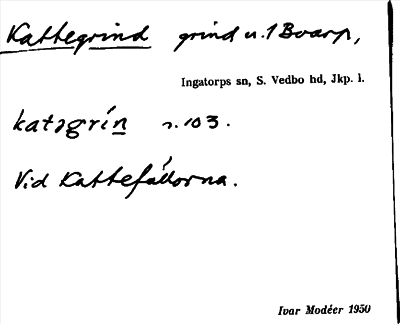 Kattegrind grind u. 1 Boarp,
Ingatorps sn, S. Vedbo hd, Jkp. l.
katəgrín s. 103.
Vid Kattefållorna.
Ivar Modéer 1950